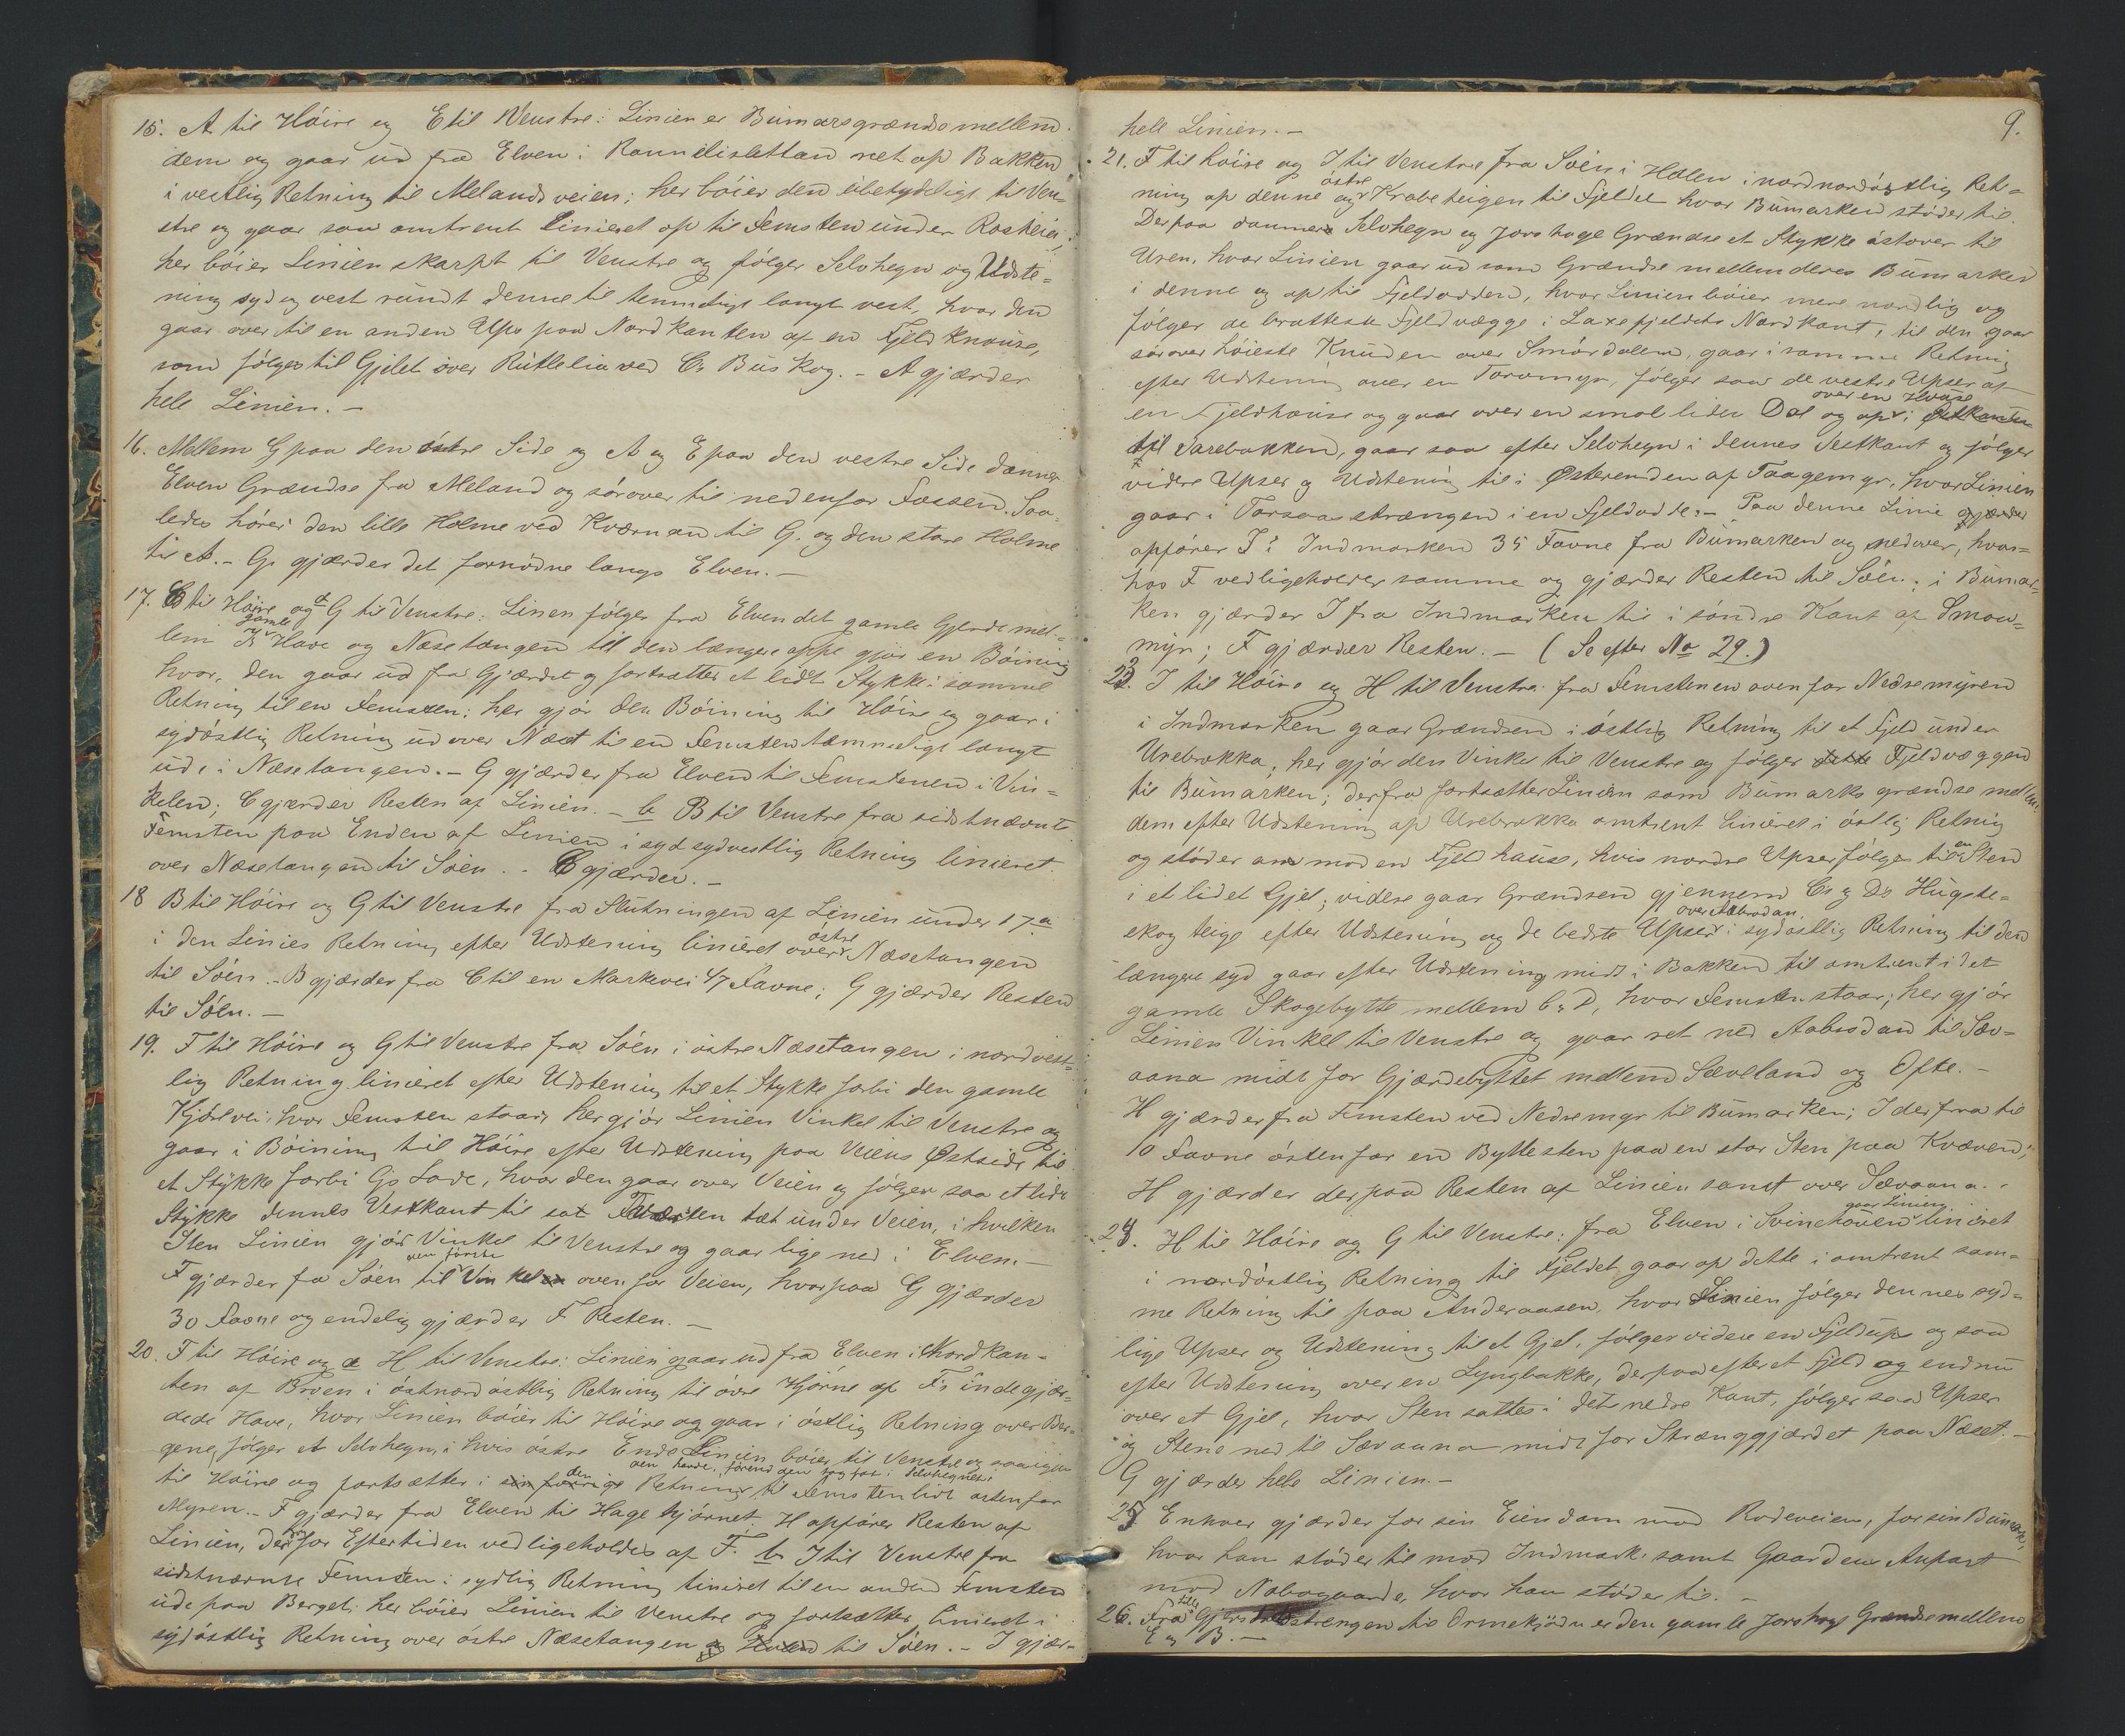 15. A til Høire og E til Venstre: Linien er Bumarsgrændse mellem
dem og gaar ud fra Elven i Ronndislettan ret op Bakken
i vestlig Retning til Melandsveien; her bøier den ubetydeligt til Ven-
stre og gaar saa omtrent linieret op til Femsten under Rosheia;
her bøier Linien skarpt til Venstre og følger Selvhegn og Udste-
ning syd og vest rundt denne til temmeligt langt vest, hvor den
gaar over til en anden Ups paa Nordkanten af en Fjeldknouse,
som følges til Gjelet over Rutlelia ved C's Buskog. - A gjærder
hele Linien. -
16. Mellem G paa den østre Side og A og E paa den vestre Side danner
Elven Grændse fra Meland og sørover til nedenfor Fossen. Saa-
ledes hører den lille Holme ved Kværnan til G. og den store Holme
til A. - G gjærder det fornødne langs Elven. -
17. C til Høire og G til Venstre: Linien følger fra Elven det gamle Gjerde mel-
lem K's gamle Have og Næsetangen till den længere oppe gjør en Bøining
hvor den gaar ud fra Gjærdet og fortsætter et lidet Stykke i samme
Retning til en Femsten; her gjør den Bøining til Høire og gaar i
sydøstlig Retning udover Næset til en Femsten temmeligt langt
ude i Næsetangen. - G gjærder fra Elven til Femstenen i Vin-
kelen; C gjærder Resten af Linien. - b. B til Venstre fra sidstnævnte
Femsten paa Enden af Linien i syd sydvestlig Retning linieret
over Næsetangen til Søen. - C gjærder. -
18 B til Høire og G til Venstre fra Slutningen af Linien under 17.a
i den Linies Retning efter Udstening linieret over østre Næsetangen
til Søen. - B gjærder fra C til en Markevei 47 Favne; G gjærder Resten
til Søen. -
19. F til Høire og G til Venstre fra Søen i østre Næsetangen i nordvest-
lig Retning linieret efter Udstening til et Stykke forbi den gamle
Kjørevei, hvor Femsten staar; her gjør Linien Vinkel til Venstre og
gaar i Bøining til Høire efter Udstening paa Veiens Østside til
et Stykke forbi G's Lade, hvor den gaar over Veien og følger saa et lidet
Stykke dennes Vestkant til sat Femsten tæt under Veien, i hvilken
Sten Linien gjør Vinkel til Venstre og gaar lige ned i Elven. -
F gjærder fa Søen til den første Vinkel oven for Veien, hvorpaa G gjærder
30 Favne og endelig gjærder F Resten. -
20. F til Høire og a H til Venstre: Linien gaar ud fra Elven i Nordkan-
ten af Broen i østnordøstlig Retning til øvre Hjørne af F's indegjær-
dede Have, hvor Linien bøier til Høire og gaar i østlig Retning over Ber-
gene, følger et Selvhegn, i hvis østre Ende Linien bøier til Venstre og saa igjen
til Høire og fortsætter i den Retning den havde, førend den tog fat i Selvhegnet til Femsten lidt østenfor
Myren. - F gjærder fra Elven til Hagehjørnet. H opfører Resten af
Linien, der for Eftertiden vedligeholdes af F. b. I til Venstre fra
sidstnævnte Femsten i sydlig Retning linieret til en anden Femsten
ude paa Berget; her bøier Linien til Venstre og fortsætter linieret i
sydøstlig Retning over østre Næsetangen til Søen. - I gjær-
9.
hele Linien. -
21. F til høire og I til Venstre fra Søen i Hølen i nordnordøstlig Ret-
ning op denne og østre Krabeteigen til Fjeldet hvor Bumarken støder til.
Derpaa danner Selvhegn og Jordhage Grændse et Stykke østover til
Uren, hvor Linien gaar ud som Grændse mellem deres Bumarker
i denne og op til Fjeldodden, hvor Linien bøier mere nordlig og
følger de bratteste Fjeldvægge i Laxefjeldets Nordkant, til den gaar
sørover høieste Knuden over Smørdalen, gaar i samme Retning
efter Udstening over en Torvmyr, følger saa de vestre Upser af
en Fjeldhause og gaar over en smal liden Dal og op over en Hause i
til Sarebakken, gaar saa efter Selvhegn i dennes Vestkant og følger
videre Upser og Udstening til i Østerenden af Taagemyr, hvor Linien
gaar i Torsaasstrængen i en Fjeldodde. - Paa denne Linie
opfører I i Indmarken 35 Favne fra Bumarken og nedover, hvor-
hos F vedligeholder samme og gjærder Resten til Søen; i Bumar-
ken gjærder I fra Indmarken til i søndre Kant af Smau-
myr; F gjærder Resten. - (Se efter No 29.)
23. I til Høire og H til Venstre: fra Femstenen ovenfor Nedremyren
i Indmarken gaar Grændsen i østlig Retning til et Fjeld under
Urebrokka; her gjør den Vinkel til Venstre og følger Fjeldvæggen
til Bumarken; derfra fortsætter Linien som Bumarksgrændse mellem
dem efter Udstening op Urebrokka omtrent linieret i østlig Retning
og støder an mod en Fjeldhause, hvis nordre Upser følges til en Sten
i et lidet Gjel; videre gaar Grændsen gjennem C's og D's Hugste-
skogteige efter Udstening og de bedste Upser over Aabrodan i sydøstlig Retning til den
længere syd gaar efter Udstening midt i Bakken til omtrent i det
gamle Skogebytte mellem C og D, hvor Femsten staar; her gjør
Linien Vinkel til Venstre og gaar ret ned Aabrodan til Sæv-
aana midt for Gjærdebyttet mellem Sæveland og Ofte. -
H gjærder fra Femsten ved Nedremyr til Bumarken; I derfra til
10 Favne østenfor en Byttesten paa en stor Sten paa Kvæven;
H gjærder derpaa Resten af Linien samt over Sævaana. -
24. H til Høire og G til Venstre: fra Elven i Svinehauen gaar Linien linieret
i nordøstlig Retning til Fjeldet, gaar op dette i omtrent sam-
me Retning til paa Anderaasen, hvor Linien følger dennes syd-
lige Upser og Udstening til et Gjel, følger videre en Fjeldups og saa
efter Udstening over en Lyngbakke, derpaa efter et Fjeld og endnu
over et Gjel, hvor Sten sattes i dets nedre Kant, følger saa Upser
og Stene ned til Sævaana midt for Strænggjærdet paa Næset. -
G gjærder hele Linien. -
25 Enhver gjærder for sin Eiendom mod Rodeveien, for sin Bumark,
hvor han støder til mod Indmark samt Gaardens Anpart
mod Nabogaarde, hvor han støder til. -
26. Fra Gjerstrengen til Ormekjødn er den gamle Jordhage Grændse mellem
E og B. -